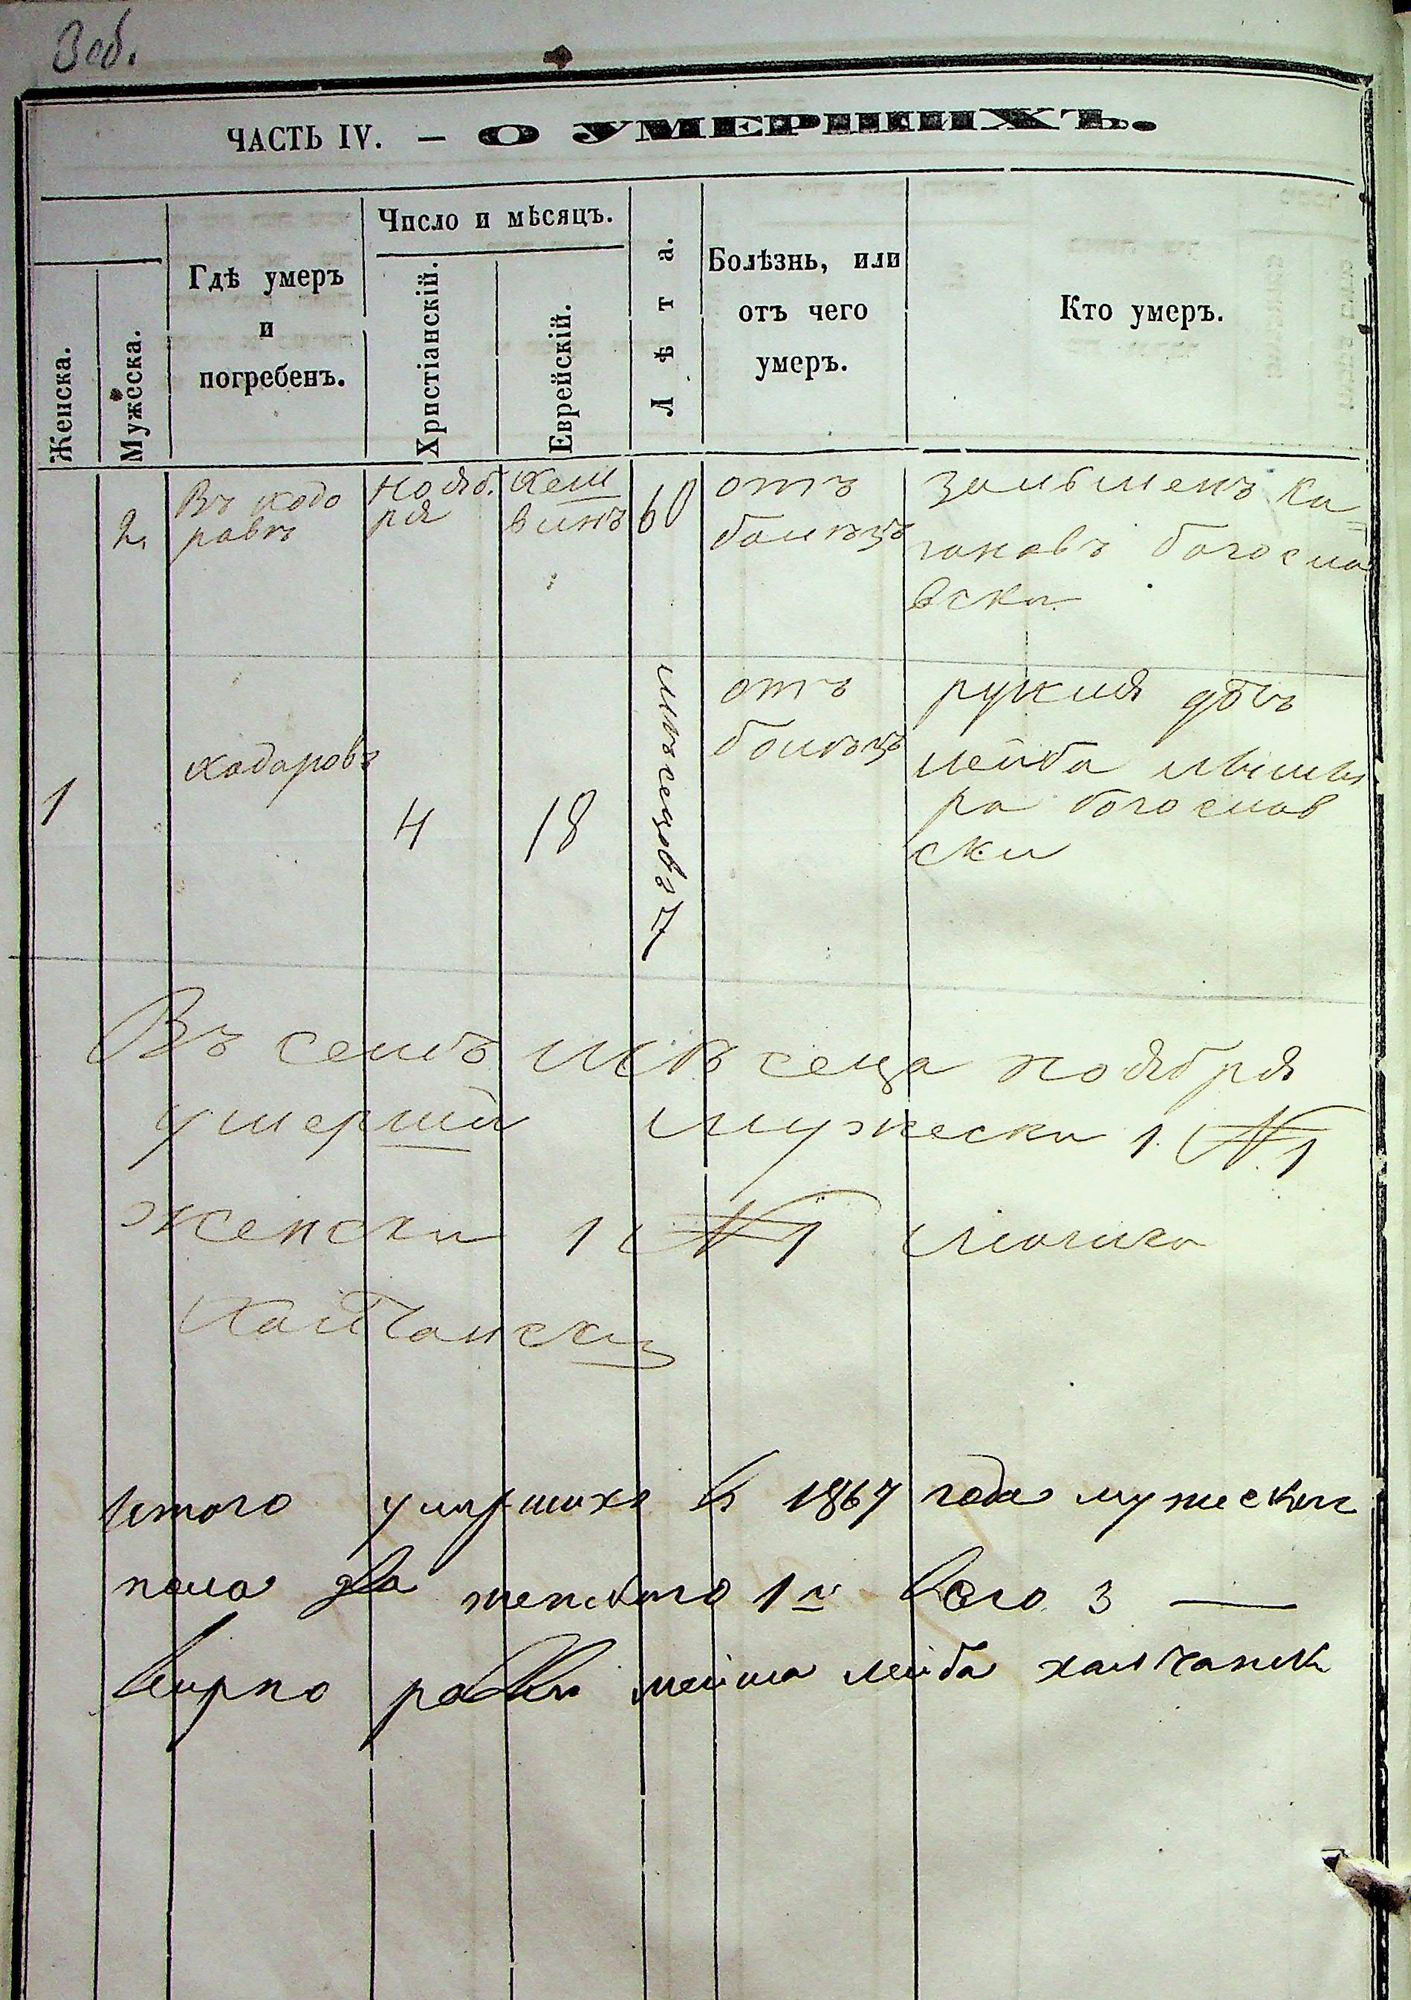 3 об.
ЧАСТЬ IV. — О УМЕРШИХЪ.
Женска.
Мужеска.
Гдѣ умеръ
и
погребенъ.
Число и мѣсяцъ.
Христіанскій.
Еврейскій.
Лѣта.
Болѣзнь, или
отъ чего
умеръ.
Кто умеръ.
2
Въ ходо
ровъ
Нояб.
ря
Хеш
винъ
60
отъ
зальменъ ка=
гановъ богосла
вски
1
ходоровъ
4
18
мѣсецовъ 7
отъ
рукля
лейба
ра богослав
ски
Въ семъ мѣсеца ноября
умерши мужески 1 № 1
женски 1 № 1
Халчански
итого умершихъ в 1867 года мужеского
пола два женского 1 всего 3 —
вирно равин лейба халчанск